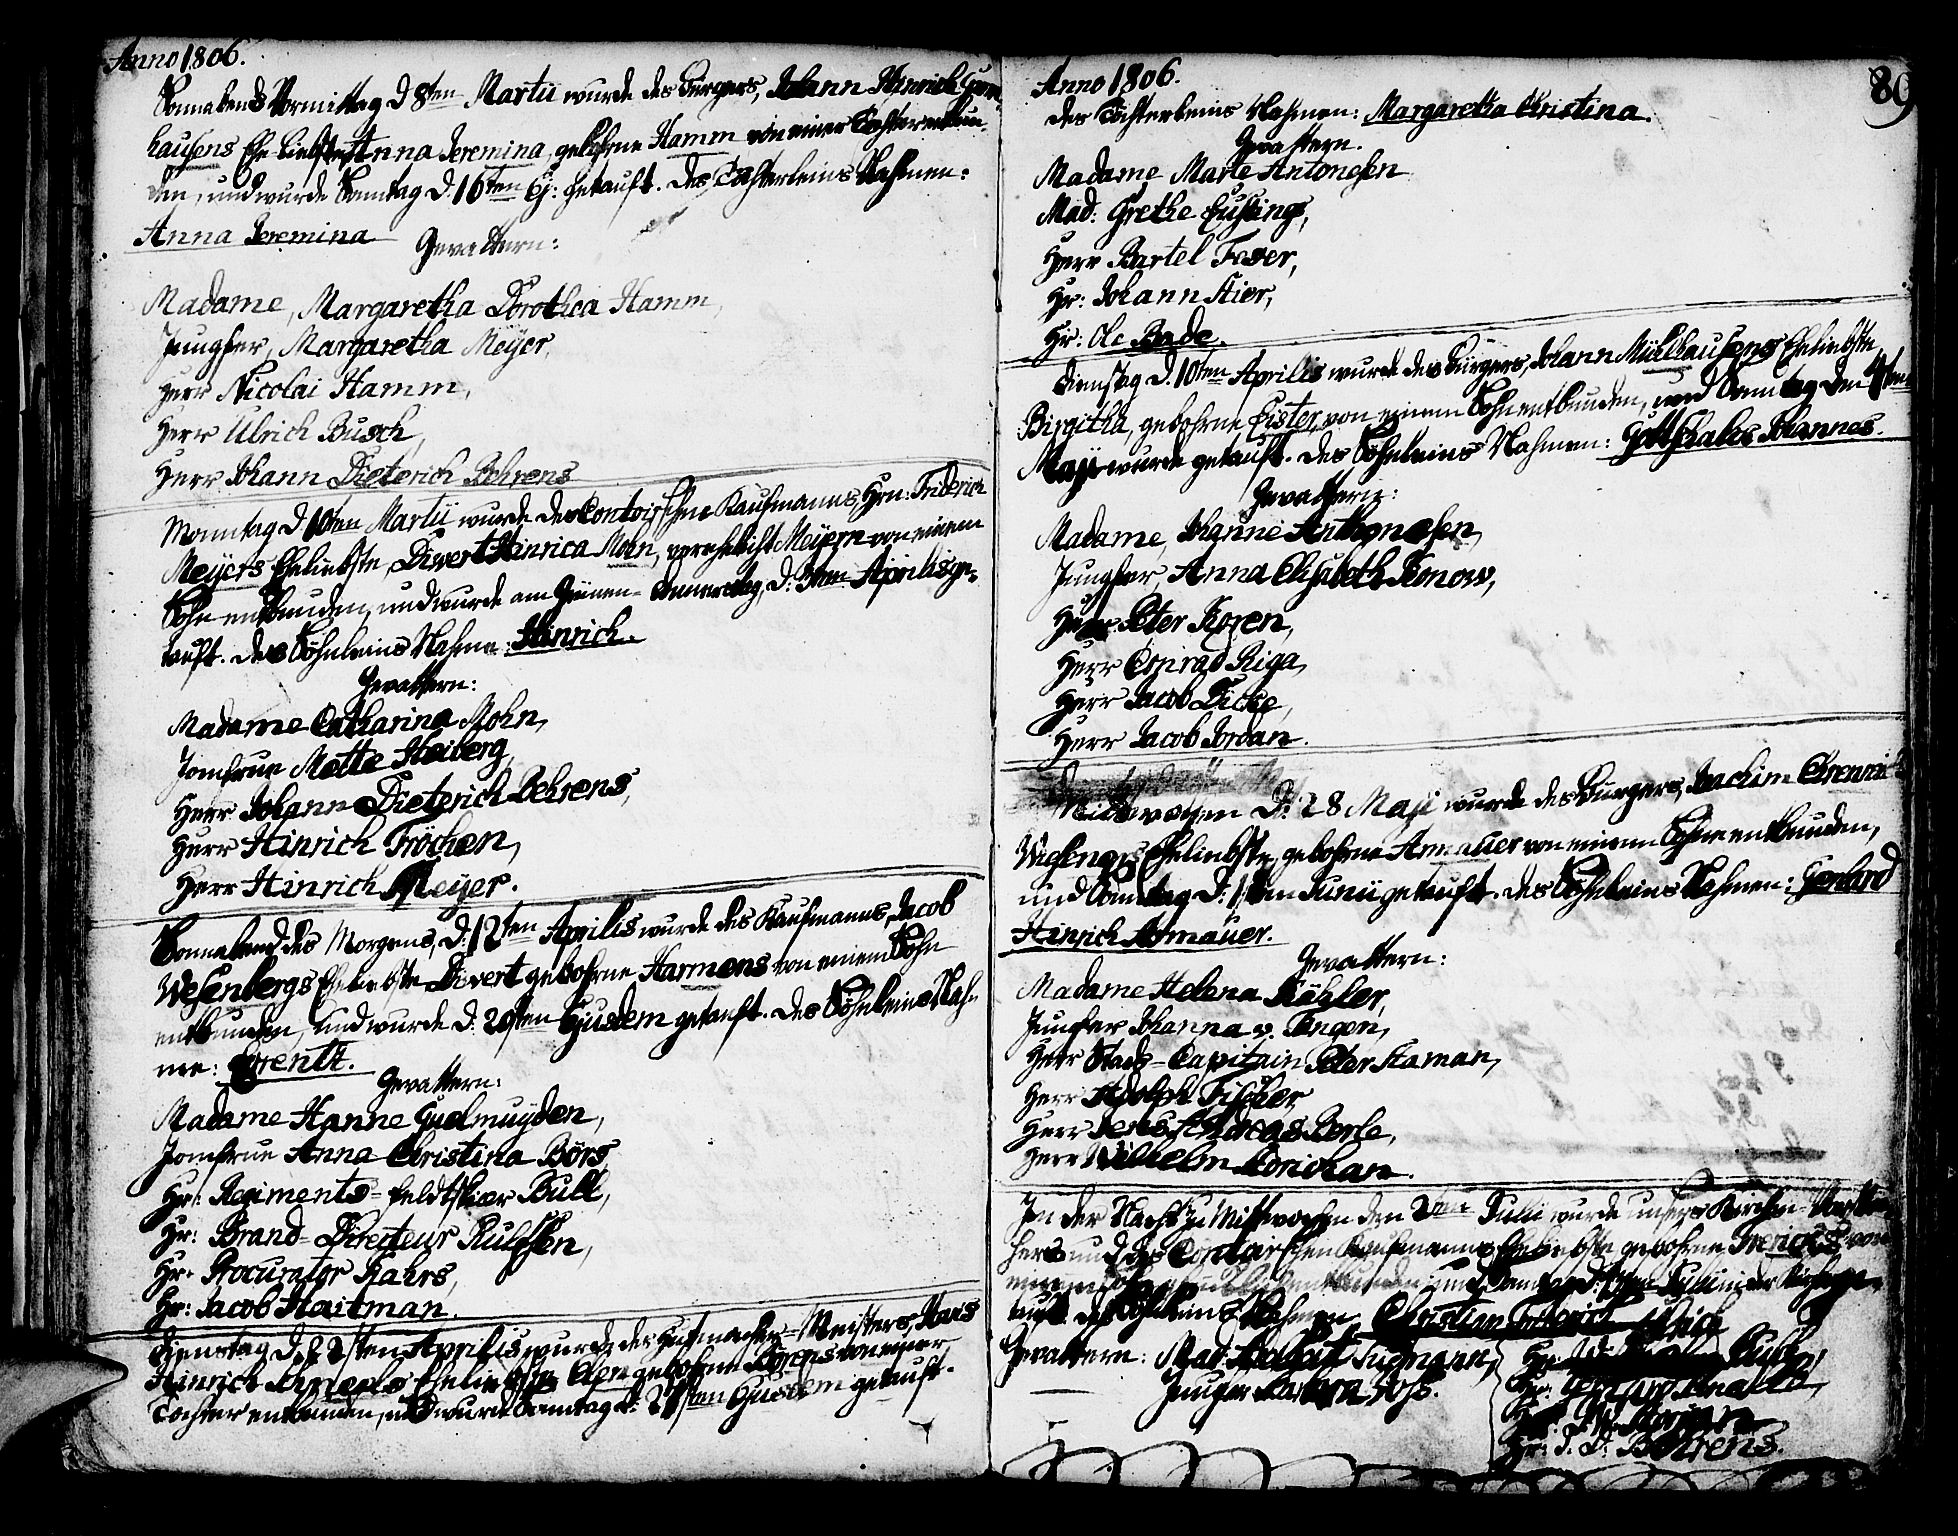 Anno 1806.
Sonnabends Vormittag d 8ten Martii wurde des Bürgers, Johann Hinrich
hausens Ehe Liebste Anna Jeremina, gebohrne Hamm von einer Tochter entbun-
den, und wurde Sonntag d. 16ten Ej: getauft. Des Töchterleins Nahmen:
Anna Jeremina
Gevattern:
Madame, Margaretha Dorothea Hamm,
Jungfer, Margaretha Meyer,
Herr Nicolai Hamm,
Herr Ulrich Busch,
Herr Johann Dieterich Behrens
Monntag d 10ten Martii wurde des Contoirschen Kaufmanns, Hrn: Friderich
Meyers Eheliebste, Divert Hinrica Mohn, verehelicht Meyern von einem
Sohn entbunden, und wurde am Grünen-Donnerstag, d: 3ten Aprilis ge-
tauft. Des Söhnleins Nahme: Hinrich.
Gevattern:
Madame Catharina Mohn,
Jomfrue Mette Heiberg,
Herr Johann Dieterich Behrens,
Herr Hinrich Fröchen,
Herr Hinrich Meyer.
Sonnabend des Morgens, d: 12ten Aprilis wurde des Kaufmanns, Jacob
Wesenbergs Eheliebste Divert gebohrne Harmens von einem Sohn
entbunden, und wurde d. 20sten Ejusdem getauft. Des Söhnleins Nah-
me: Gerentt.
Gevattern:
Madame Hanne Guelmuyden,
Jomfrue Anna Christina Börs,
Hr: Regiments-Feldtskier Bull,
Hr: Brand-Directeur Rulffsen,
Hr: Procurator Rahrs,
Hr: Jacob Haitman.
Dienstag d. 22sten Aprilis wurde des Hutmacher-Meisters, Hans
Hinrich Eheliebste gebohrne von einer
Tochter entbunden, und wurde Sonntag d: 27sten Ejusdem getauft.
Anno 1806.
89
des Töchterleins Nahmen: Margaretha Christina.
Gevattern.
Madame Marte Antonesen
Mad: Grethe
Herr Bartel Faser,
Hr: Johann Hier,
Hr: Ole Bade.
Dienstag d. 10ten Aprilis wurde des Bürgers, Johann Mühlhausens Eheliebste
Birgitha, gebohrne Eister, von einem Sohn entbunden, und Sonntag den 4ten
Maji wurde getauft. Des Söhnleins Nahmen: Gottschalk Johannes.
Gevattern:
Madame, Johanne Anthonesen,
Jungfer, Anna Elisabeth Konow,
Herr Peter Koren,
Herr Conrad Riga,
Herr Jacob Dicke,
Herr Jacob Jordan.
Mittwochen D: 28 Maji wurde des Burgers, Joachim
Wesengs Eheliebste, gebohrne Armauer von einem Sohn entbunden,
und Sonntag D: 1sten Junii getauft. Des Söhnleins Nahmen: Gerhard
Hinrich Armauer.
Gevattern:
Madame Helena Kähler,
Jungfer Johanna v. Tangen,
Herr Stads-Capitain Peter Haman,
Herr Adolph Fischer
Herr Jens Andreas
Herr Wilhelm Konichan.
In der Nacht zu Mittwochen den 2ten Julii wurde unsers Kirchen-
hers und des Contoirschen Kaufmanns Eheliebste gebohrne von
einem Sohn entbunden, und Sonntag d: Julii in der Kirche ge-
tauft. des Söhnleins Nahmen, Christian Friderich Ulrich
Gevattern: Mad:
Jungfer
Hr:
Hr:
Hr: J. D: Behrens.